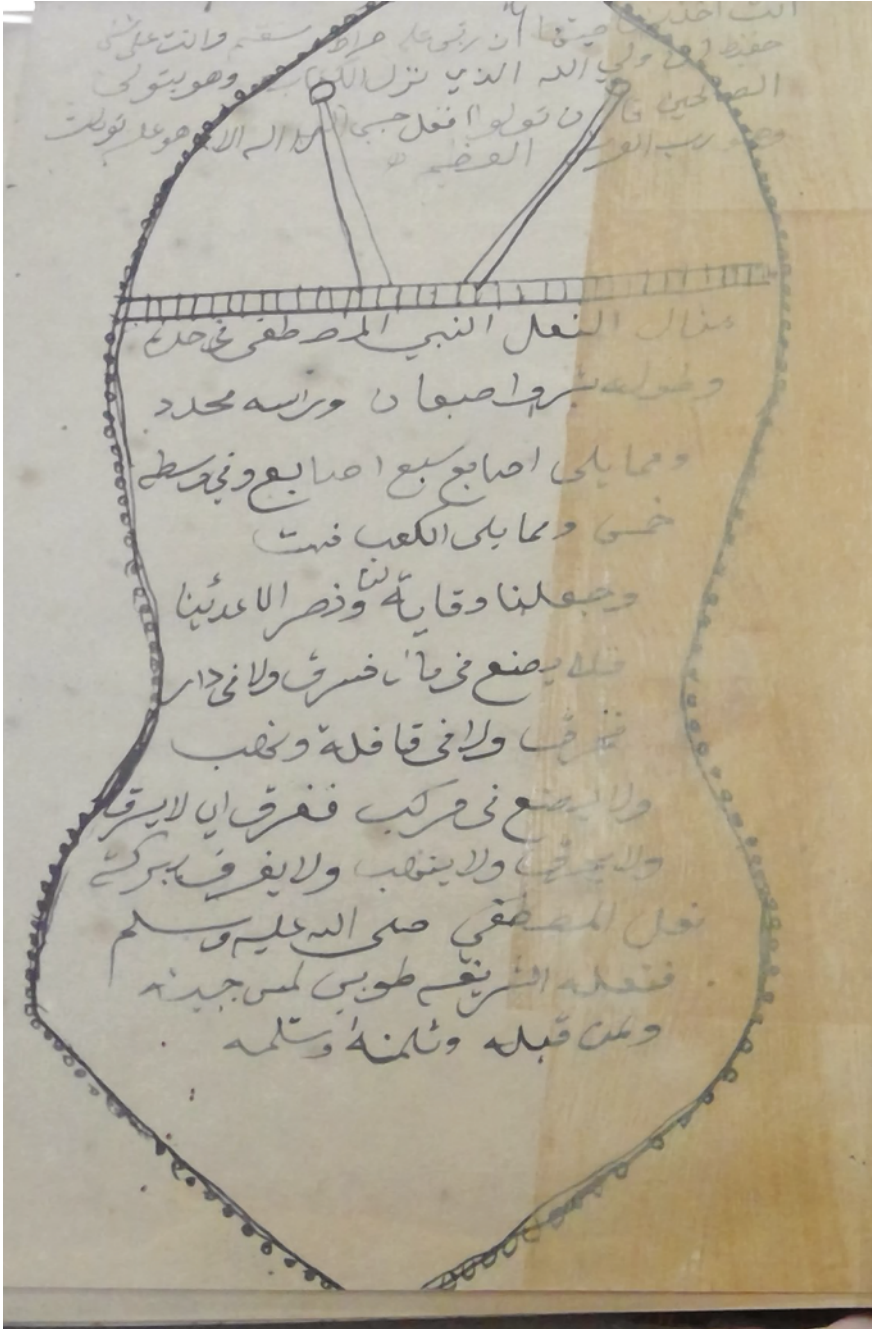 انت اخذ بناصيتها ان ربي على صراط مستقيم وانت على
حفيظ ان ولي الله الذي نزل الكتاب وهو يتولى
الصالحين فان تولوا فقل حسبي الله لا اله الا هو عليه توكلت
وهو رب العرش العظيم
مثال النعل النبي المصطفى
وطوله شبر واصبعان وراسه محدد
ومما يلي اصابع سبع اصابع وفي وسطه
خمس ومما يلي الكعب
وجعلنا وقاية لنا
فلا يصنع في مال فسرق ولا في دار
فخرق ولا في قافلة ونهب
ولا يصنع في مركب فغرق اي لا يسرق
ولا يحرق ولا ينهب ولا يغرق ببركة
نعل المصطفى صلى الله عليه وسلم
فنعله الشريفه طوبى لمس
ولمن قبله